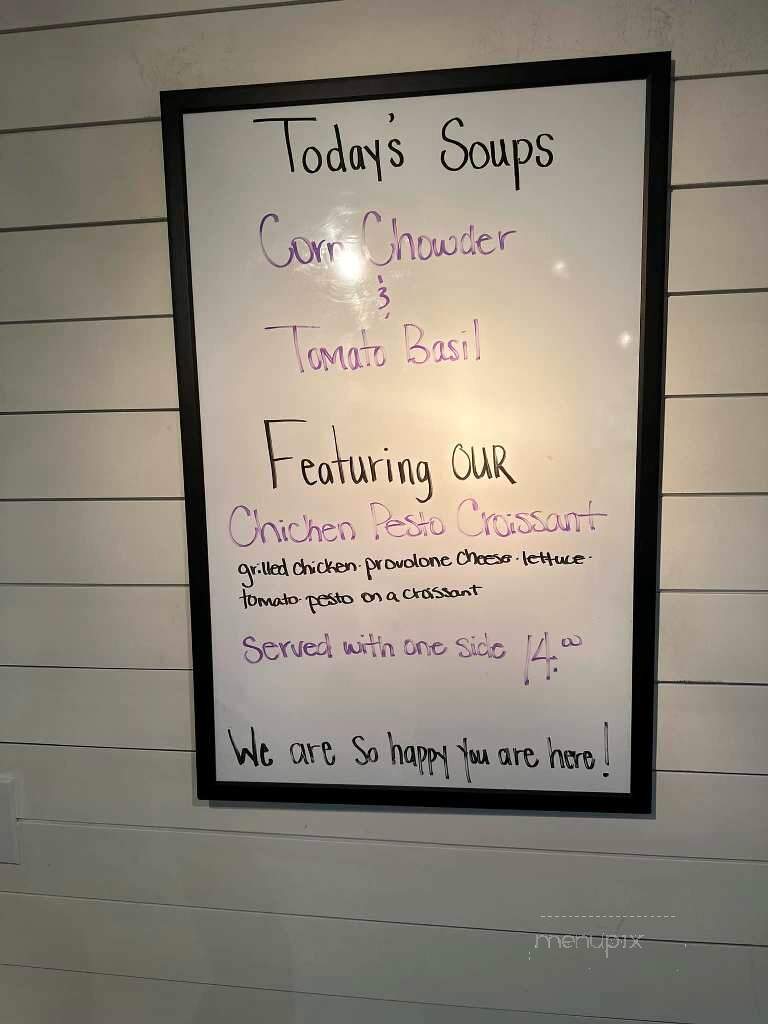 Today's Soups
Corn Chowder
&
Tomato Basil
Featuring OUR
Chicken Pesto Croissant
grilled chicken · provolone cheese · lettuce ·
tomato · pesto on a croissant
Served with one side 14.00
We are so happy you are here!
menupix